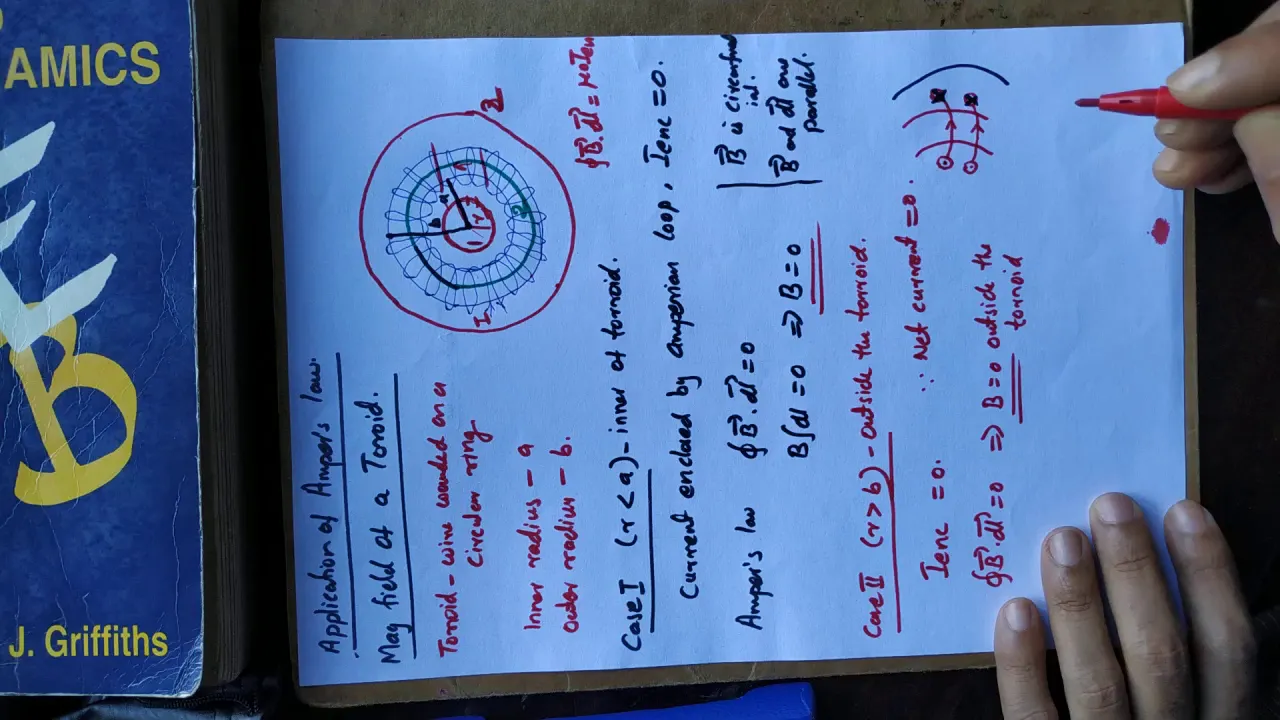 AMICS
B
J. Griffiths
Application of Amper's law.
Mag field of a Torroid.
Torroid - wire wounded on a
circular ring
Inner radius - a
outer radius - b.
I
a
b
r
1
2
∮B⃗.dl⃗ = μ0Ienc
Case I (r < a) - inner of torroid.
Current enclosed by amperian loop, Ienc = 0.
Amper's law ∮B⃗.dl⃗ = 0
B∫dl = 0 ⇒ B = 0
B⃗ is circumfrent
ial.
B⃗ and dl⃗ are
parallel.
Case II (r > b) - outside the torroid.
Ienc = 0. ∵ Net current = 0.
∮B⃗.dl⃗ = 0 ⇒ B = 0 outside the
torroid